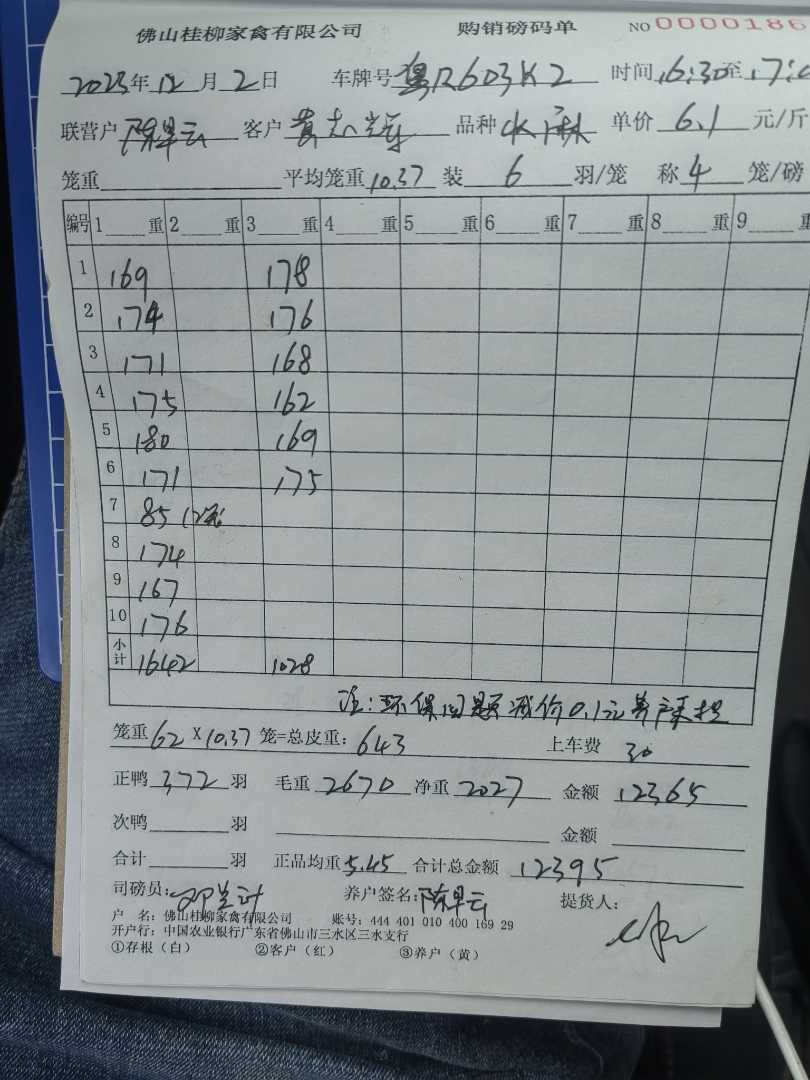 佛山桂柳家禽有限公司 购销磅码单 NO 0000186
2023年 12 月 2 日 车牌号 粤R603K2 时间 16:30 至 17:
联营户 陈早云 客户 黄志辉 品种 水麻 单价 6.1 元/斤
笼重 平均笼重 10.37 装 6 羽/笼 称 4 笼/磅
编号 1 重 2 重 3 重 4 重 5 重 6 重 7 重 8 重 9 重
1 169 178
2 174 176
3 171 168
4 175 162
5 180 169
6 171 175
7 85 (2笼)
8 174
9 167
10 176
小计 1642 1028
注:环保问题减价0.1元养户承担
笼重 62 X 10.37 笼=总皮重: 643 上车费 30
正鸭 372 羽 毛重 2670 净重 2027 金额 12365
次鸭 羽 金额
合计 羽 正品均重 5.45 合计总金额 12395
司磅员: 养户签名: 陈早云 提货人:
户 名: 佛山桂柳家禽有限公司 账号: 444 401 010 400 169 29
开户行: 中国农业银行广东省佛山市三水区三水支行
①存根(白) ②客户(红) ③养户(黄)